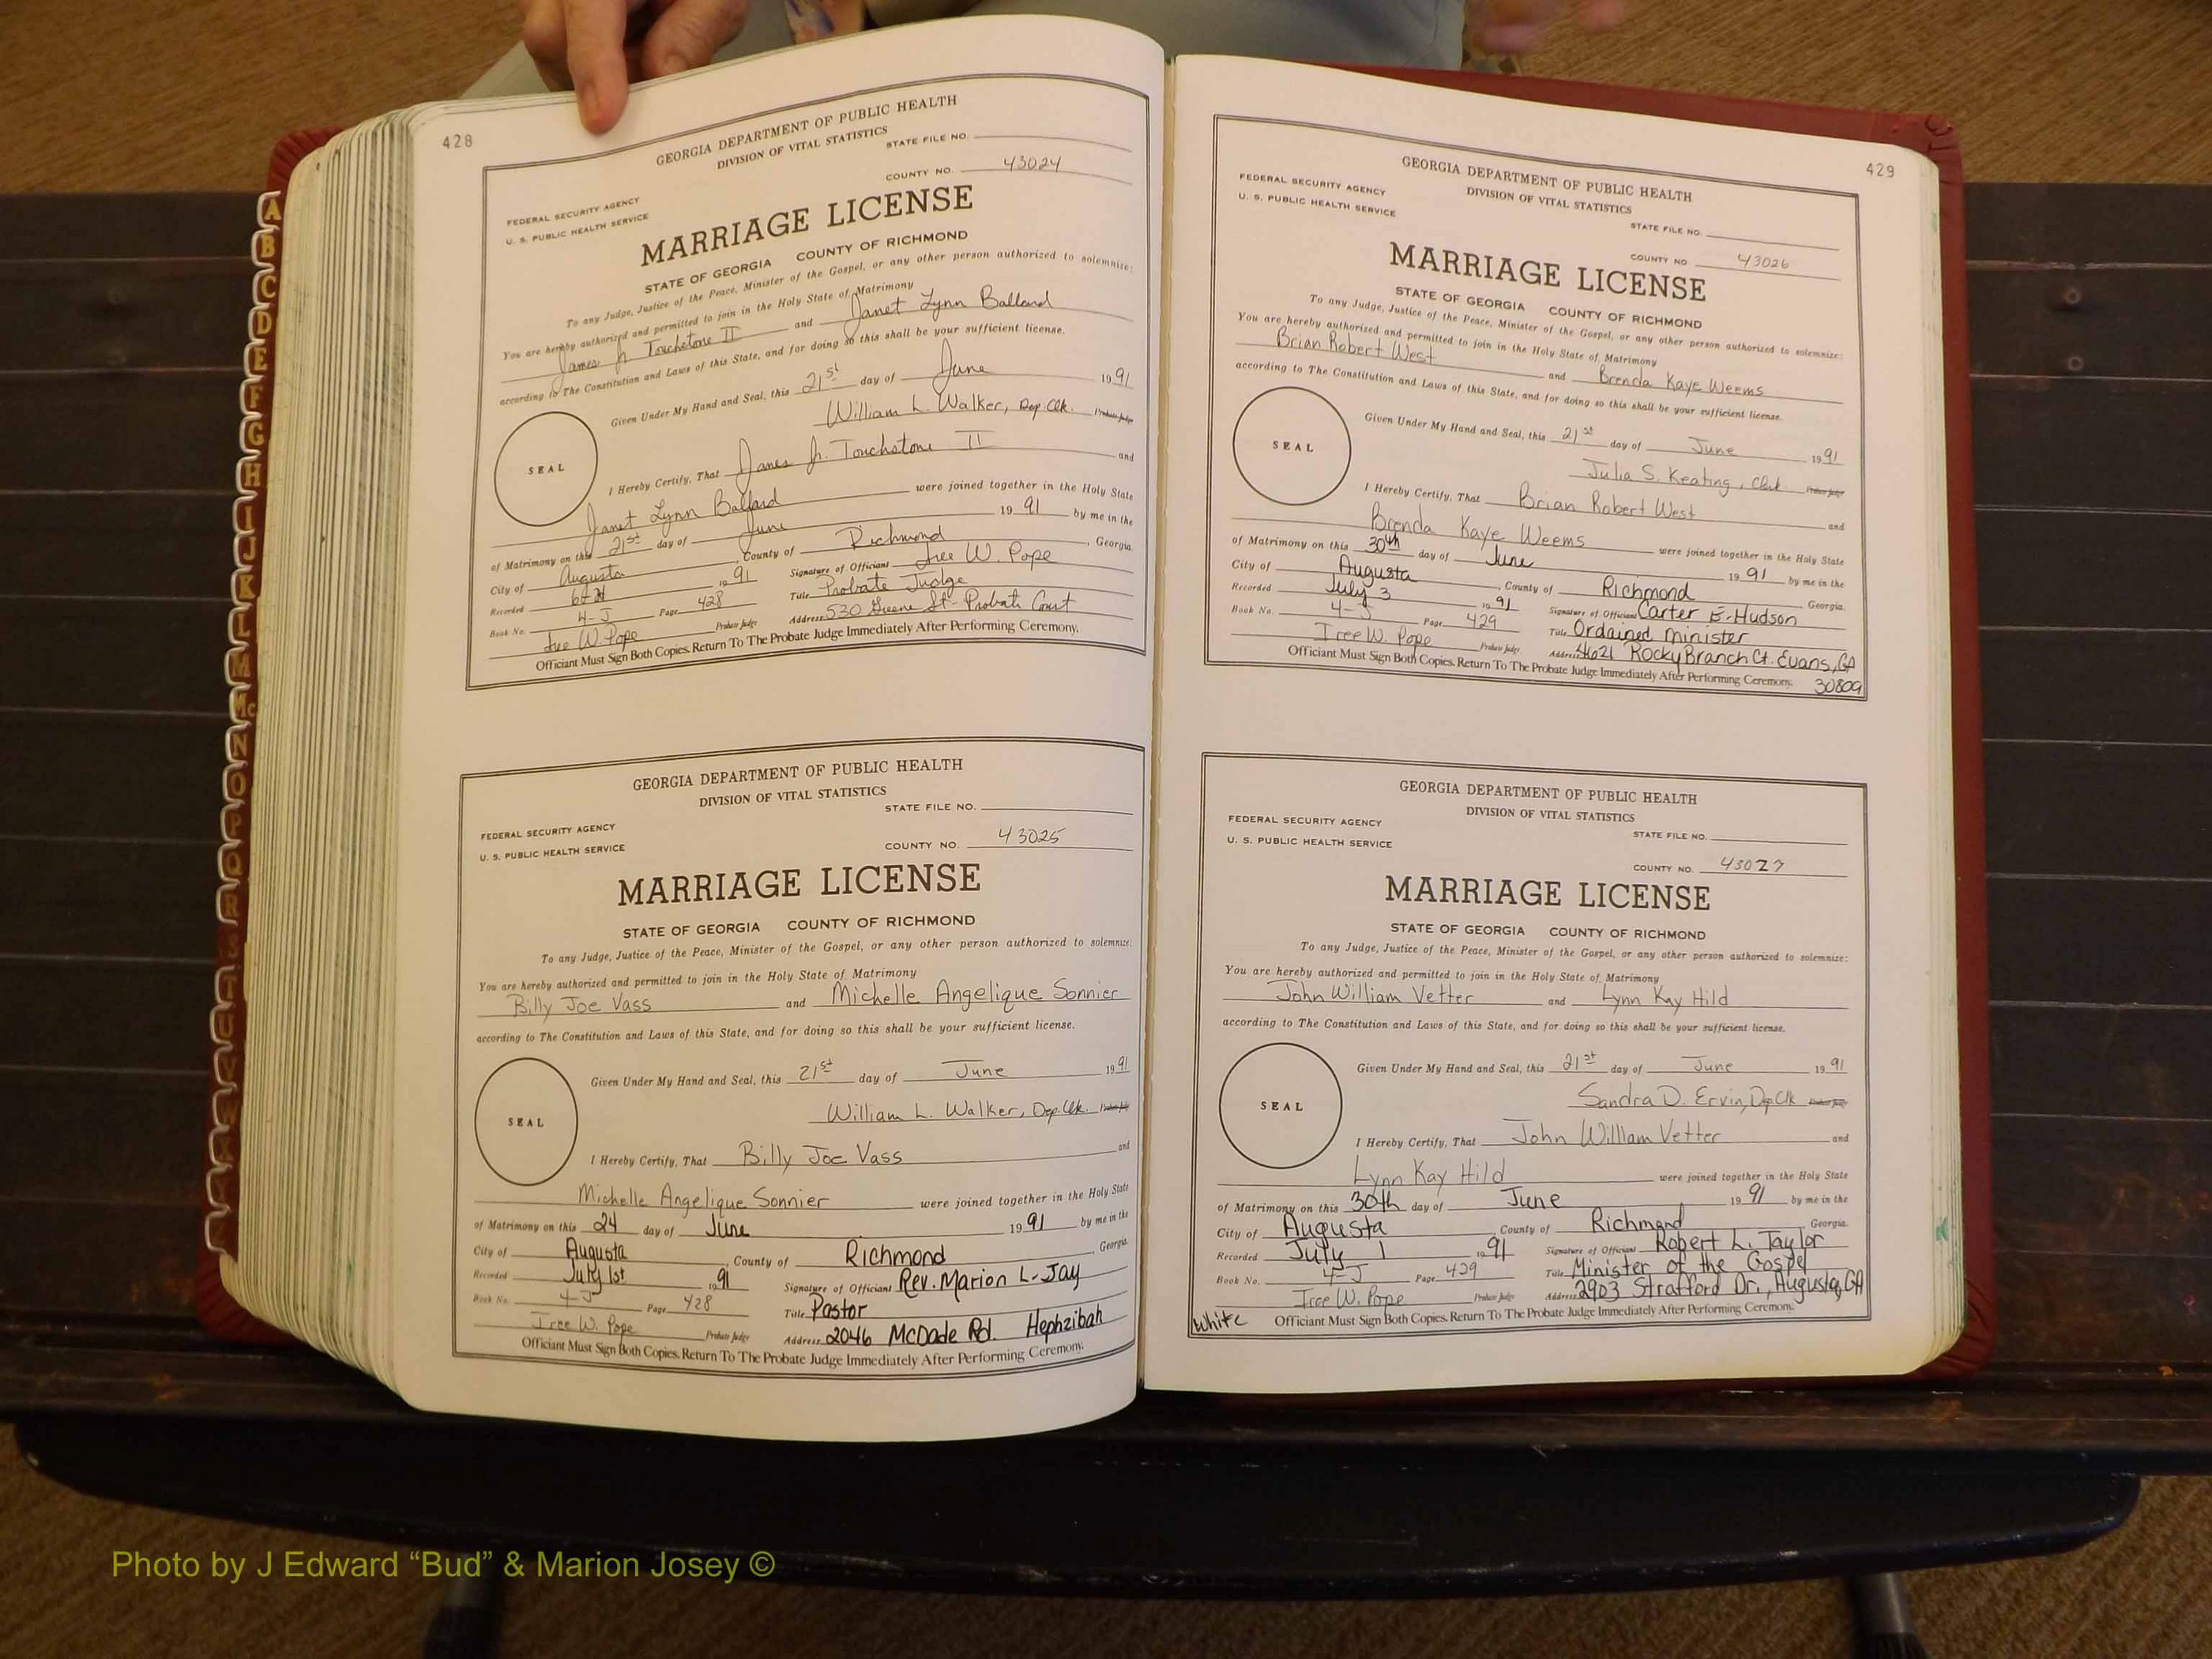 428
GEORGIA DEPARTMENT OF PUBLIC HEALTH
DIVISION OF VITAL STATISTICS
STATE FILE NO.
COUNTY NO. 43024
FEDERAL SECURITY AGENCY
U. S. PUBLIC HEALTH SERVICE
MARRIAGE LICENSE
STATE OF GEORGIA COUNTY OF RICHMOND
To any Judge, Justice of the Peace, Minister of the Gospel, or any other person authorized to solemnize:
You are hereby authorized and permitted to join in the Holy State of Matrimony
James Jr. Touchstone II and Janet Lynn Ballard
according to The Constitution and Laws of this State, and for doing so this shall be your sufficient license.
Given Under My Hand and Seal, this 21st day of June 1991
William L. Walker, Dep. Clk. Probate Judge
SEAL
I Hereby Certify, That James Jr. Touchstone II and
Janet Lynn Ballard were joined together in the Holy State
of Matrimony on this 21st day of June 1991 by me in the
City of Augusta, County of Richmond, Georgia.
Recorded 6-21 1991 Signature of Officiant Iree W. Pope
Book No. 4-J Page 428 Title Probate Judge
Iree W. Pope Probate Judge Address 530 Greene St- Probate Court
Officiant Must Sign Both Copies. Return To The Probate Judge Immediately After Performing Ceremony.
GEORGIA DEPARTMENT OF PUBLIC HEALTH
DIVISION OF VITAL STATISTICS
STATE FILE NO.
FEDERAL SECURITY AGENCY
U. S. PUBLIC HEALTH SERVICE
COUNTY NO. 43025
MARRIAGE LICENSE
STATE OF GEORGIA COUNTY OF RICHMOND
To any Judge, Justice of the Peace, Minister of the Gospel, or any other person authorized to solemnize:
You are hereby authorized and permitted to join in the Holy State of Matrimony
Billy Joe Vass and Michelle Angelique Sonnier
according to The Constitution and Laws of this State, and for doing so this shall be your sufficient license.
Given Under My Hand and Seal, this 21st day of June 1991
William L. Walker, Dep. Clk. Probate Judge
SEAL
I Hereby Certify, That Billy Joe Vass and
Michelle Angelique Sonnier were joined together in the Holy State
of Matrimony on this 24 day of June 1991 by me in the
City of Augusta, County of Richmond, Georgia.
Recorded July 1st 1991 Signature of Officiant Rev. Marion L. Jay
Book No. 4-J Page 428 Title Pastor
Iree W. Pope Probate Judge Address 2046 McDade Rd. Hephzibah
Officiant Must Sign Both Copies. Return To The Probate Judge Immediately After Performing Ceremony.
429
GEORGIA DEPARTMENT OF PUBLIC HEALTH
DIVISION OF VITAL STATISTICS
FEDERAL SECURITY AGENCY
U. S. PUBLIC HEALTH SERVICE
STATE FILE NO.
COUNTY NO. 43026
MARRIAGE LICENSE
STATE OF GEORGIA COUNTY OF RICHMOND
To any Judge, Justice of the Peace, Minister of the Gospel, or any other person authorized to solemnize:
You are hereby authorized and permitted to join in the Holy State of Matrimony
Brian Robert West and Brenda Kaye Weems
according to The Constitution and Laws of this State, and for doing so this shall be your sufficient license.
Given Under My Hand and Seal, this 21st day of June 1991
Julia S. Keating, Clerk Probate Judge
SEAL
I Hereby Certify, That Brian Robert West and
Brenda Kaye Weems were joined together in the Holy State
of Matrimony on this 30th day of June 1991 by me in the
City of Augusta, County of Richmond Georgia.
Recorded July 3 1991 Signature of Officiant Carter E. Hudson
Book No. 4-J Page 429 Title Ordained Minister
Iree W. Pope Probate Judge Address 4621 Rocky Branch Ct. Evans, GA
30809
Officiant Must Sign Both Copies. Return To The Probate Judge Immediately After Performing Ceremony.
GEORGIA DEPARTMENT OF PUBLIC HEALTH
DIVISION OF VITAL STATISTICS
FEDERAL SECURITY AGENCY
U. S. PUBLIC HEALTH SERVICE
STATE FILE NO.
COUNTY NO. 43027
MARRIAGE LICENSE
STATE OF GEORGIA COUNTY OF RICHMOND
To any Judge, Justice of the Peace, Minister of the Gospel, or any other person authorized to solemnize:
You are hereby authorized and permitted to join in the Holy State of Matrimony
John William Vetter and Lynn Kay Hild
according to The Constitution and Laws of this State, and for doing so this shall be your sufficient license.
Given Under My Hand and Seal, this 21st day of June 1991
Sandra D. Ervin, Dep Clk Probate Judge
SEAL
I Hereby Certify, That John William Vetter and
Lynn Kay Hild were joined together in the Holy State
of Matrimony on this 30th day of June 1991 by me in the
City of Augusta, County of Richmond Georgia.
Recorded July 1 1991 Signature of Officiant Robert L. Taylor
Book No. 4-J Page 429 Title Minister of the Gospel
Iree W. Pope Probate Judge Address 2903 Strafford Dr., Augusta, GA
White
Officiant Must Sign Both Copies. Return To The Probate Judge Immediately After Performing Ceremony.
A
B
C
D
E
F
G
H
I
J
K
L
M
Mc
N
O
P
Q
R
S
T
U
V
W
Photo by J Edward “Bud” & Marion Josey ©